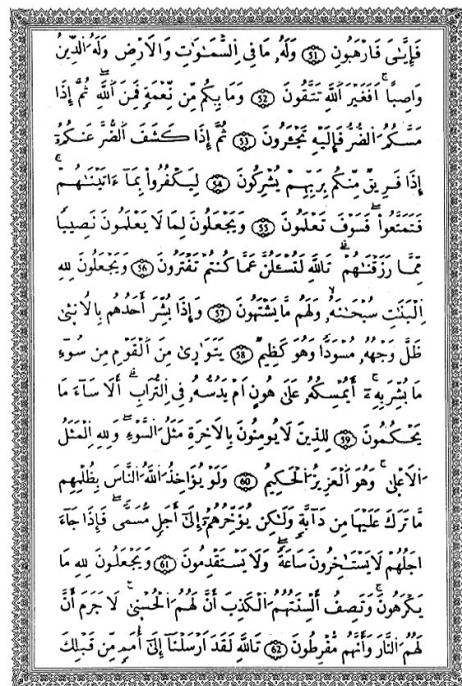 فَإِيَّـٰىَ فَارْهَبُونِ ٥١ وَلَهُۥ مَا فِى اِ۬لسَّمَـٰوَٰتِ وَالَارْضِ وَلَهُ اُ۬لدِّينُ
وَاصِباًۖ اَفَغَيْرَ اَ۬للَّهِ تَتَّقُونَ ٥٢ وَمَا بِكُم مِّن نِّعْمَةٍ فَمِنَ اَ۬للَّهِۖ ثُمَّ إِذَا
مَسَّكُمُ اُ۬لضُّرُّ فَإِلَيْهِ تَجْـَٔرُونَ ٥٣ ثُمَّ إِذَا كَشَفَ اَ۬لضُّرَّ عَنكُمُۥٓ
إِذَا فَرِيقٌ مِّنكُم بِرَبِّهِمْ يُشْرِكُونَ ٥٤ لِيَكْفُرُواْ بِمَآ ءَاتَيْنَـٰهُمْۖ
فَتَمَتَّعُواْۖ فَسَوْفَ تَعْلَمُونَ ٥٥ وَيَجْعَلُونَ لِمَا لَا يَعْلَمُونَ نَصِيباً
مِّمَّا رَزَقْنَـٰهُمْۖ تَاللَّهِ لَتُسْـَٔلُنَّ عَمَّا كُنتُمْ تَفْتَرُونَ ٥٦ وَيَجْعَلُونَ لِلهِ
اِ۬لْبَنَـٰتِ سُبْحَـٰنَهُۥ وَلَهُم مَّا يَشْتَهُونَ ٥٧ وَإِذَا بُشِّرَ أَحَدُهُم بِالُانثىٰ
ظَلَّ وَجْهُهُۥ مُسْوَدّاً وَهُوَ كَظِيمٌ ٥٨ يَتَوَٰرىٰ مِنَ اَ۬لْقَوْمِ مِن سُوٓءِ
مَا بُشِّرَ بِهِۦٓۖ أَيُمْسِكُهُۥ عَلَىٰ هُونٍ اَمْ يَدُسُّهُۥ فِى اِ۬لتُّرَابِۖ أَلَا سَآءَ مَا
يَحْكُمُونَ ٥٩ لِلذِينَ لَا يُومِنُونَ بِالَاخِرَةِ مَثَلُ اُ۬لسَّوْءِۖ وَلِلهِ اِ۬لْمَثَلُ
اُ۬لَاعْلىٰۖ وَهُوَ اَ۬لْعَزِيزُ اُ۬لْحَكِيمُ ٦٠ وَلَوْ يُؤَاخِذُ اُ۬للَّهُ اُ۬لنَّاسَ بِظُلْمِهِم
مَّا تَرَكَ عَلَيْهَا مِن دَآبَّةٍ وَلَـٰكِن يُؤَخِّرُهُمُۥٓ إِلَىٰٓ أَجَلٍ مُّسَمًّىۖ فَإِذَا جَآءَ
اجَلُهُمْ لَا يَسْتَـٰخِرُونَ سَاعَةً وَلَا يَسْتَقْدِمُونَ ٦١ وَيَجْعَلُونَ لِلهِ مَا
يَكْرَهُونَۖ وَتَصِفُ أَلْسِنَتُهُمُ اُ۬لْكَذِبَ أَنَّ لَهُمُ اُ۬لْحُسْنىٰۖ لَا جَرَمَ أَنَّ
لَهُمُ اُ۬لنَّارَ وَأَنَّهُم مُّفْرِطُونَ ٦٢ تَاللَّهِ لَقَدَ اَرْسَلْنَآ إِلَىٰٓ أُمَمٍ مِّن قَبْلِكَ